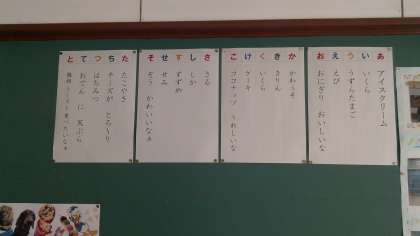 あ アイスクリーム
い いくら
う うずらたまご
え えび
お おにぎり おいしいな
か かわうそ
き きりん
く くじら
け ケーキ
こ ココナッツ うれしいな
さ さる
し しか
す すずめ
せ せみ
そ ぞう かわいいなぁ
た たこやき
ち チーズが とろ〜り
つ はちみつ
て おでん に 天ぷら
と